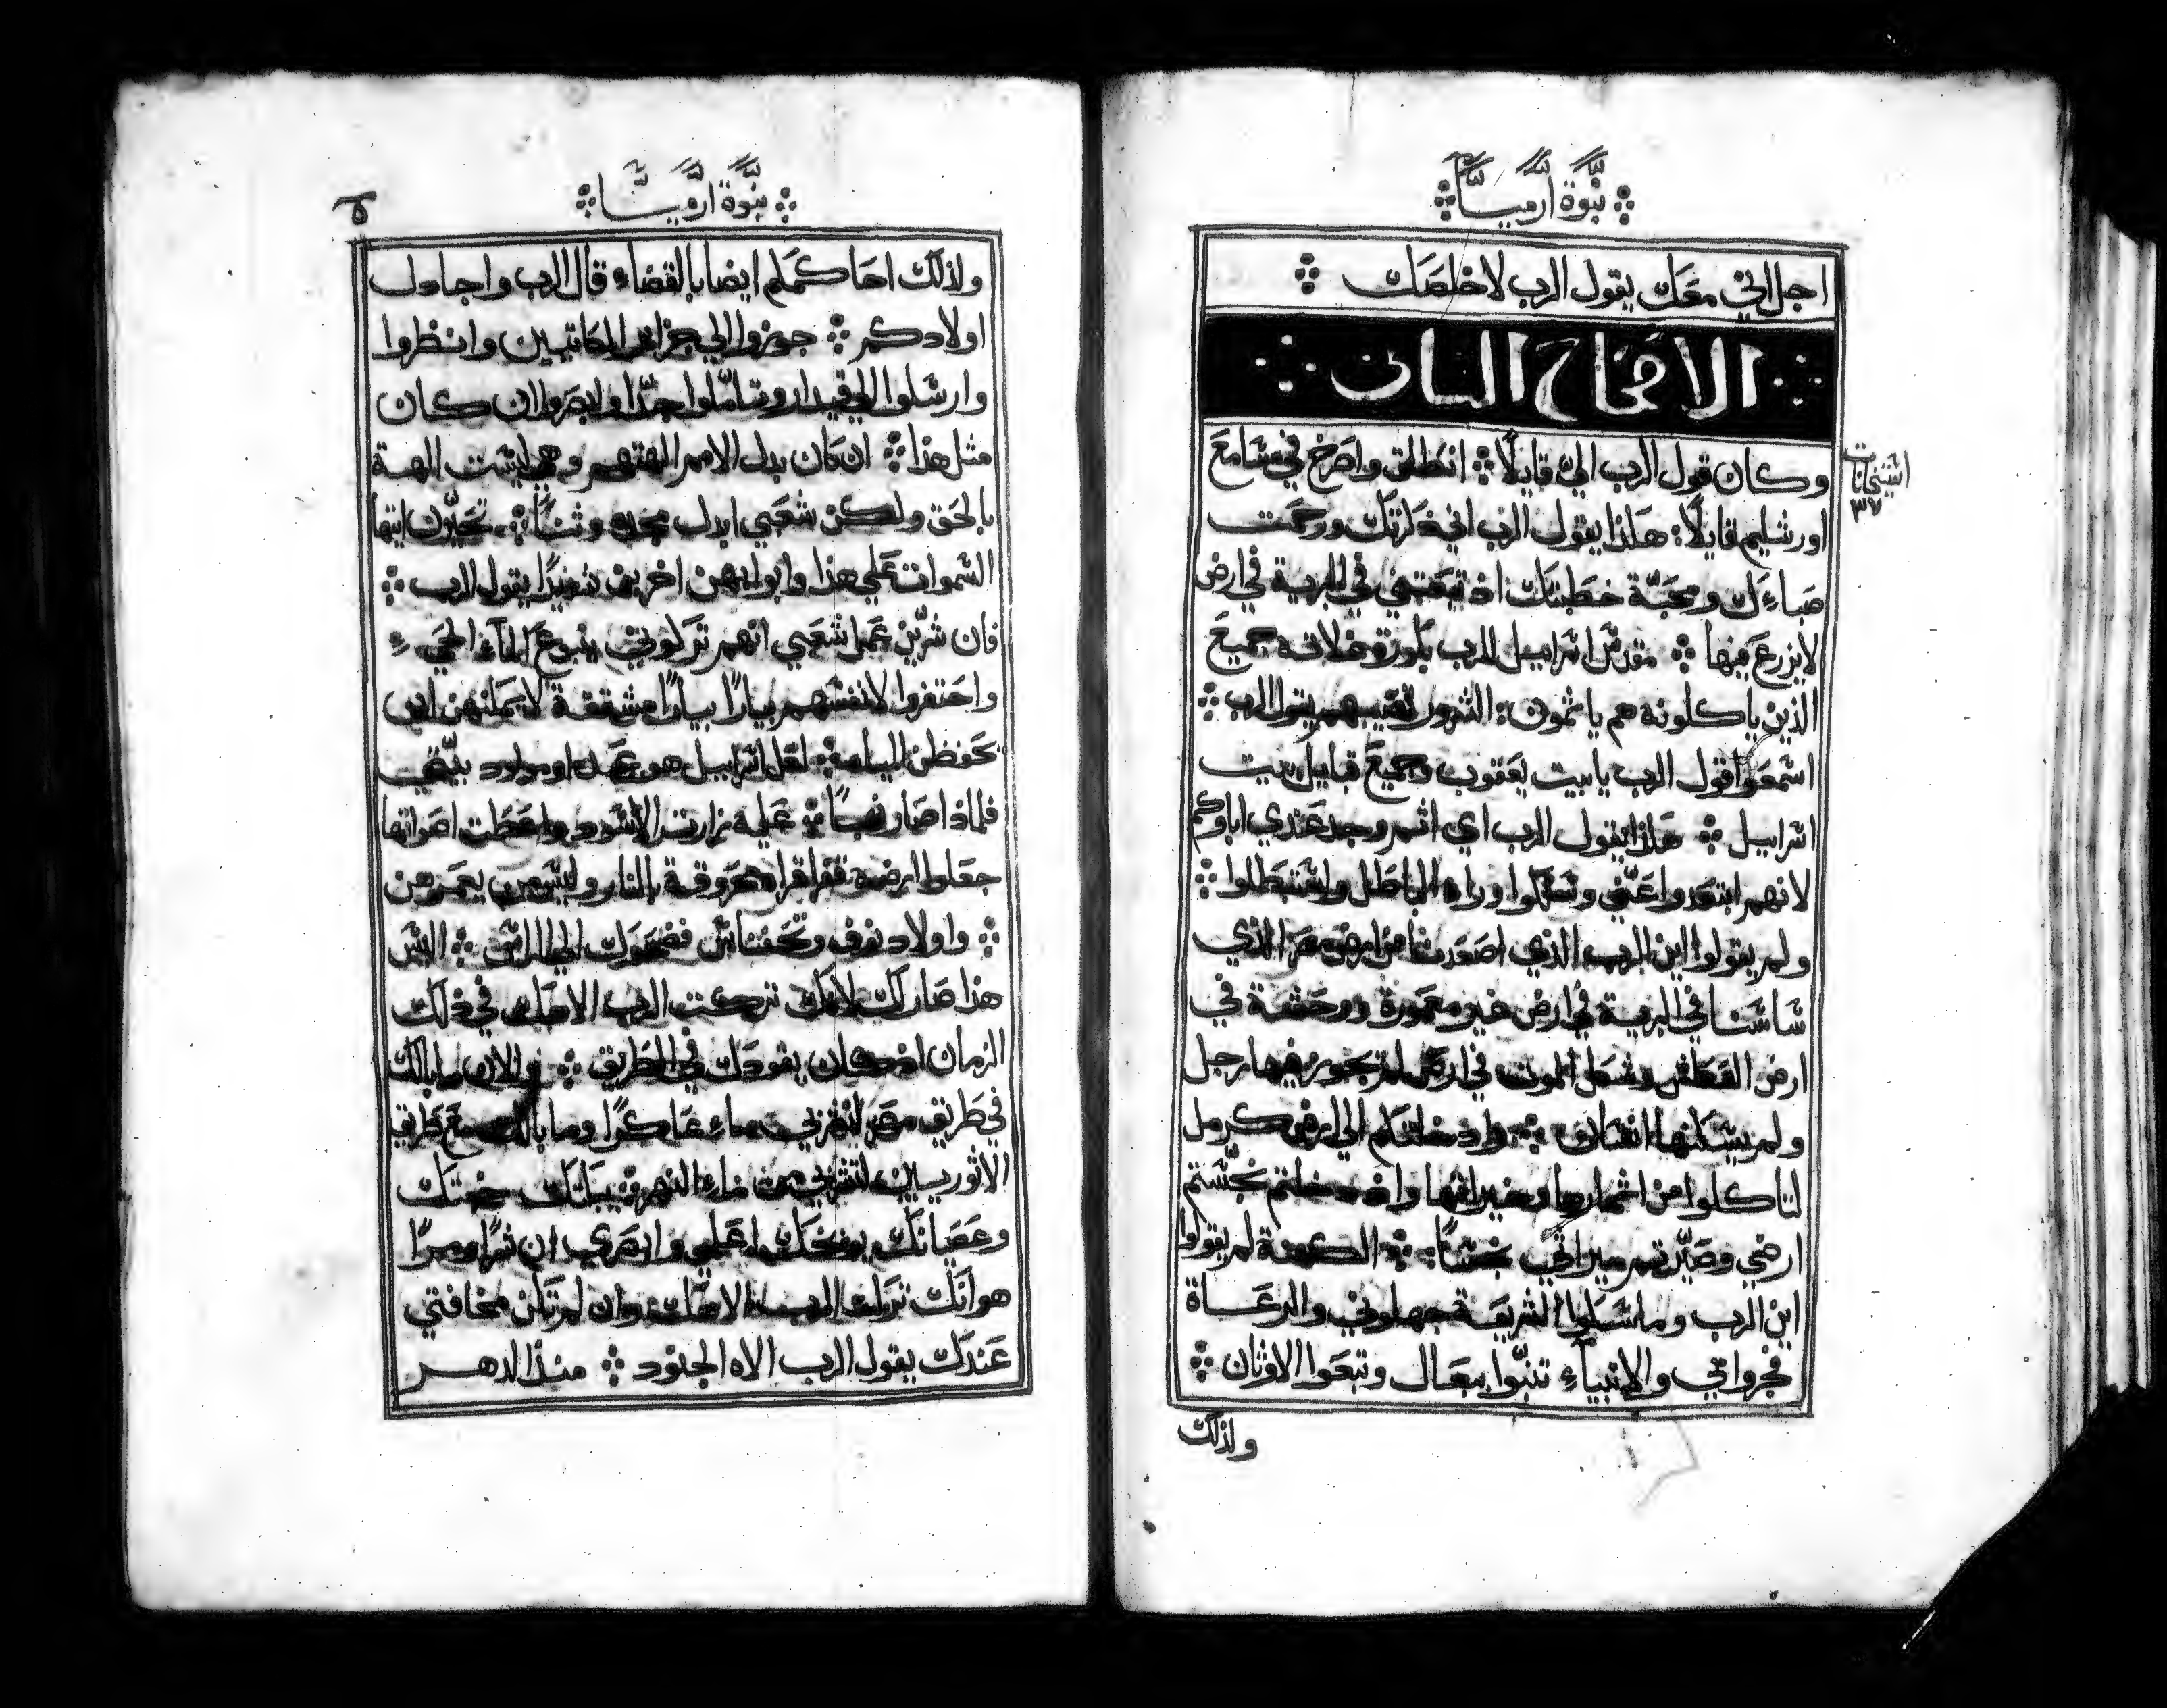 نبوة ارميا
اجل اني معك يقول الرب لاخلصك
الاصحاح الثاني
وكان قول الرب الي قايلًا انطلق واصرخ في مسامع
استيخانات
٣٧
اورشليم قايلًا هكذا يقول الرب اني ذكرتك ورحمت
صباءك ومحبة خطبتك اذ تبعتني في البرية في ارض
لا يزرع فيها مقدس اسراييل للرب بكورة غلاته جميع
الذين ياكلونه هم ياثمون الشرور تصيبهم يقول الرب
اسمعوا قول الرب يا بيت يعقوب وجميع قبايل بيت
اسراييل هكذا يقول الرب اي اثم وجد عندي اباوكم
لانهم ابتعدوا عني وسلكوا وراء الباطل واستبطلوا
ولم يقولوا اين الرب الذي اصعدنا من ارض مصر الذي
ساسنا في البرية في ارض غير معمورة ووحشة في
ارض العطش وشكل الموت في ارض لم يجوز فيها رجل
ولم يسكنها انسان وادخلتكم الي ارض كرمل
لتاكلوا من اثمارها وخيراتها واذ دخلتم نجستم
ارضي وصيرتم ميراثي نجسًا الكهنة لم يقولوا
اين الرب وماسكوا الشريعة جهلوني والرعاة
فجروا في والانبياء تنبوا ببعال وتبعوا الاوثان
ولذلك
نبوة ارميا
٥
ولذلك احاكمكم ايضا بالقضاء قال الرب واجادل
اولادكم جوزوا الي جزاير الكاتيين وانظروا
وارسلوا الي قيدار وتاملوا جدًا وابصروا ان كان
مثل هذا ان كان بدل الامم الهتهم وهي ليست الهة
بالحق ولكن شعبي ابدل مجده وثنًا تحيرن ايتها
السموات علي هذا وابوابهن اخربن شديدًا يقول الرب
فان شرين عمل شعبي انهم تركوني ينبوع الماء الحي
واحتفروا لانفسهم بيارًا بيارًا مشققة لا يمكنهن ان
تحفظن المياه لعل اسراييل هو عبد او مولود بيتي
فلماذا صار نهبًا عليه زارت الاسود واعطت اصواتها
جعلوا ارضه قفرا قراه محروقة بالنار وليس من يعمرهن
واولاد نوف وتحفناس فضحوك الي الراس اليس
هذا صار لك لانك تركت الرب الاهك في ذلك
الزمان اذ كان يقودك في الطريق والان ما بالك
في طريق مصر لتشربي ماء عاكرًا وما بالك مع طريق
الاثوريين لتشربي من ماء النهر يبكتك خبثك
وعصيانك يوبخك اعلمي وابصري ان شرًا ومرًا
هو انك تركت الرب الاهك وان لم تكن مخافتي
عندك يقول الرب الاه الجنود منذ الدهر